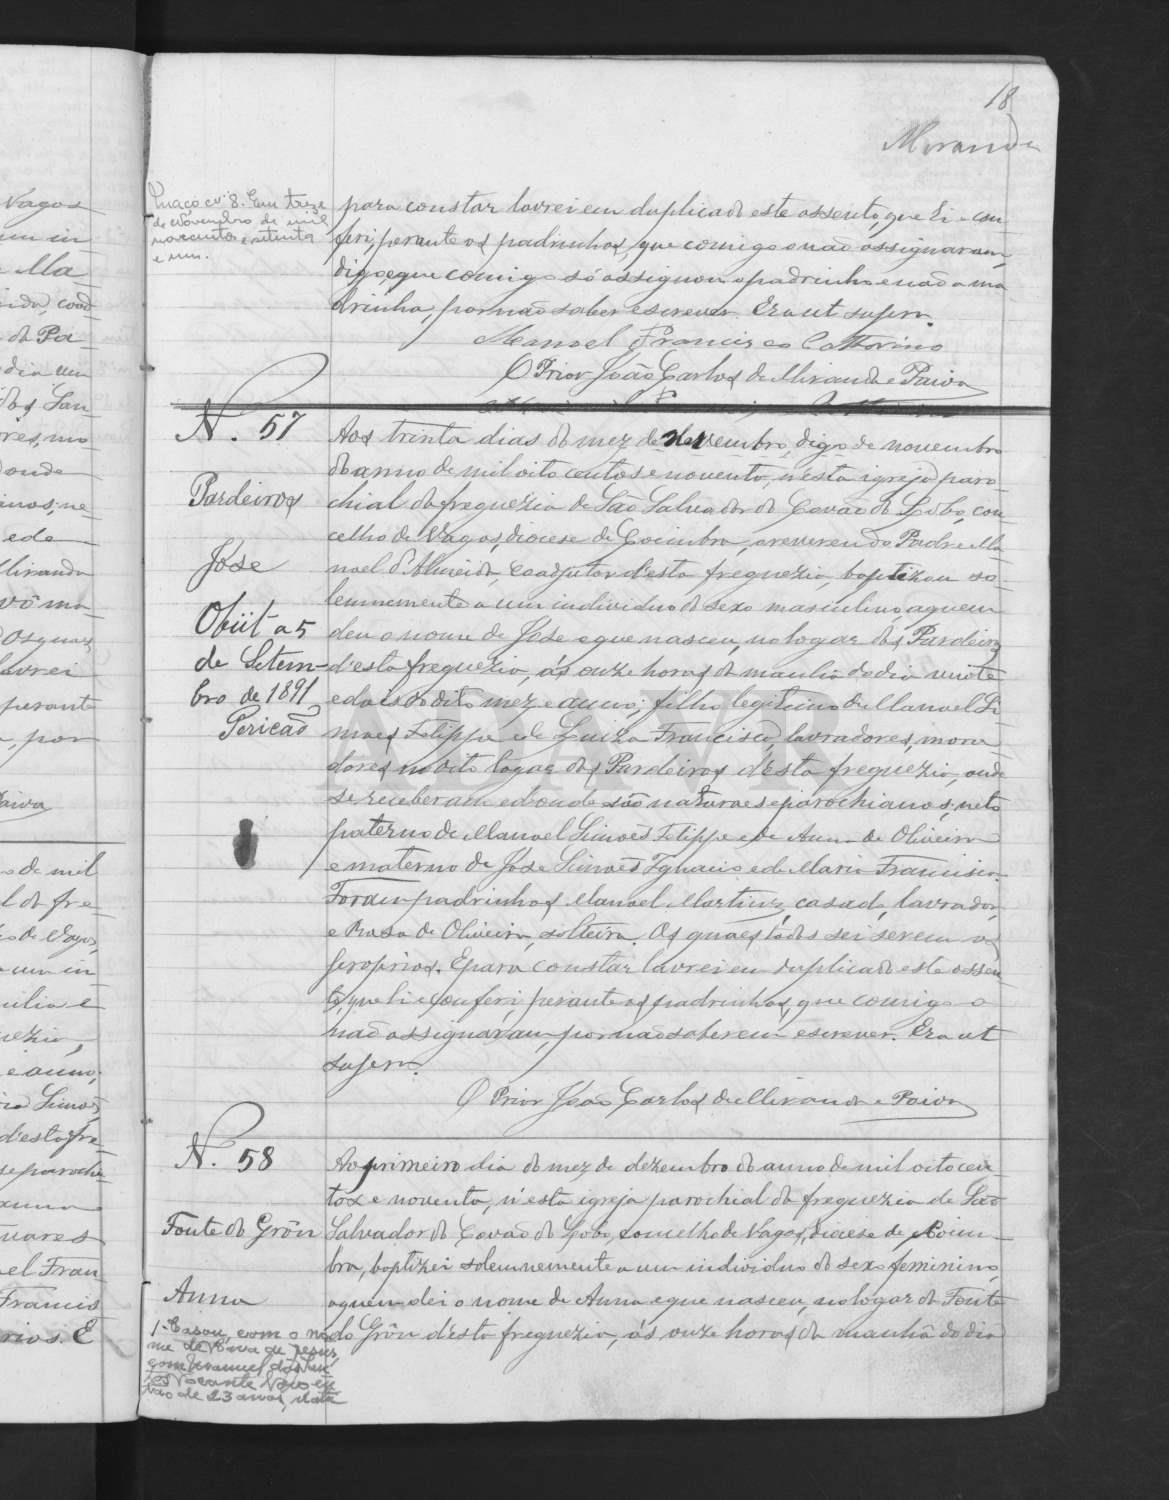 18
Miranda
Maço nº 8. Em treze
de Novembro de mil
novecentos e setenta
e um.
para constar lavrei em duplicado este assento, que li e con
feri, perante os padrinhos, que comigo o não assignaram,
digo, que comigo só assignou o padrinho e não a ma
drinha, por não saber escrever. Era ut supra.
Manoel Francisco Catharino
O Prior João Carlos de Miranda e Paiva
N. 57
Pardeiros
José
Obiit a 5
de Setem-
bro de 1891
Aos trinta dias do mez de dezembro, digo de novembro
do anno de mil oito centos e noventa, n'esta igreja paro-
chial da freguezia de São Salvador do Covão do Lobo, con
celho de Vagos, diocese de Coimbra, o reverendo Padre Ma
noel d'Almeida, Coadjutor d'esta freguezia, baptizou so-
lemnemente a um individuo do sexo masculino a quem
deu o nome de José e que nasceu, no logar dos Pardeiros
d'esta freguezia, ás onze horas da manhã do dia vinte
e dois do dito mez e anno; filho legitimo de Manoel Si
moes Felippe e de Luiza Francisca, lavradores, mora
dores no dito logar dos Pardeiros d'esta freguezia, onde
se receberam e d'onde são naturaes e parochianos; neto
paterno de Manoel Simoes Felippe e de Anna de Oliveira
e materno de José Simoes Ignacio e de Maria Francisca.
Foram padrinhos Manoel Martins, casado, lavrador,
e Rosa de Oliveira, solteira. Os quaes todos sei serem os
proprios. E para constar lavrei em duplicado este assen
to, que li e conferi, perante os padrinhos, que comigo o
não assignaram, por não saberem escrever. Era ut
supra.
O Prior João Carlos de Miranda e Paiva
N. 58
Fonte do Grôu
Anna
1-Casou, com o no
me de
de 23 anos,
Ao primeiro dia do mez de dezembro do anno de mil oito cen
tos e noventa, n'esta igreja parochial da freguezia de São
Salvador do Covão do Lobo, concelho de Vagos, diocese de Coim-
bra, baptizei solemnemente a um individuo do sexo feminino,
a quem dei o nome de Anna e que nasceu, no logar da Fonte
do Grôu d'esta freguezia, ás onze horas da manhã do dia